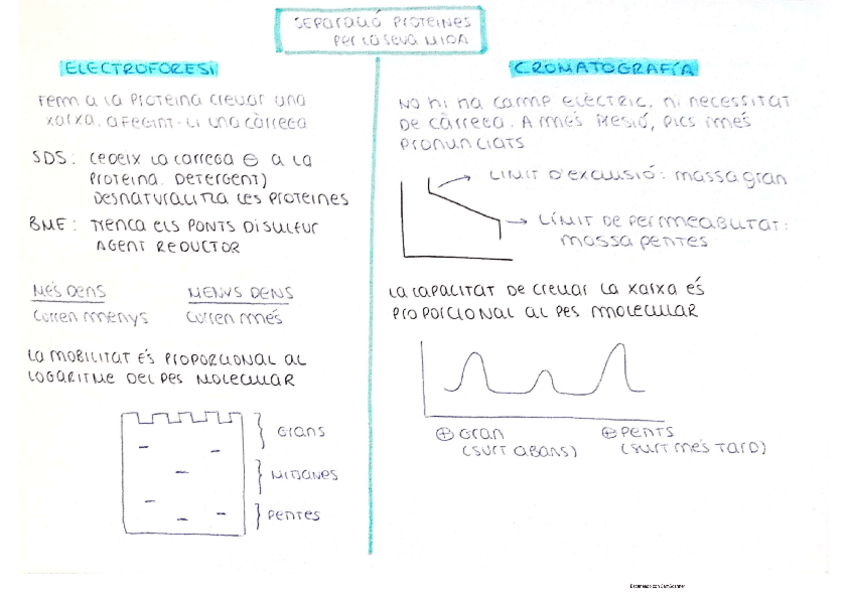 SEPARACIÓ PROTEÏNES
PER LA SEVA MIDA
ELECTROFORESI
FEM A LA PROTEÏNA CREUAR UNA
XARXA, AFEGINT-LI UNA CÀRREGA
SDS: CEDEIX LA CARREGA ⊖ A LA
PROTEÏNA. DETERGENT)
DESNATURALITZA LES PROTEÏNES
BME: TRENCA ELS PONTS DISULFUR
AGENT REDUCTOR
MÉS DENS MENYS DENS
CORREN MENYS CORREN MÉS
LA MOBILITAT ÉS PROPORCIONAL AL
LOGARITME DEL PES MOLECULAR
GRANS
MITJANES
PETITES
CROMATOGRAFÍA
NO HI HA CAMP ELÈCTRIC, NI NECESSITAT
DE CÀRREGA. A MÉS PRESIÓ, PICS MÉS
PRONUNCIATS
LÍMIT D'EXCLUSIÓ: MASSA GRAN
LÍMIT DE PERMEABILITAT:
MASSA PETITES
LA CAPACITAT DE CREUAR LA XARXA ÉS
PROPORCIONAL AL PES MOLECULAR
⊕ GRAN ⊕ PETITS
(SURT ABANS) (SURT MÉS TARD)